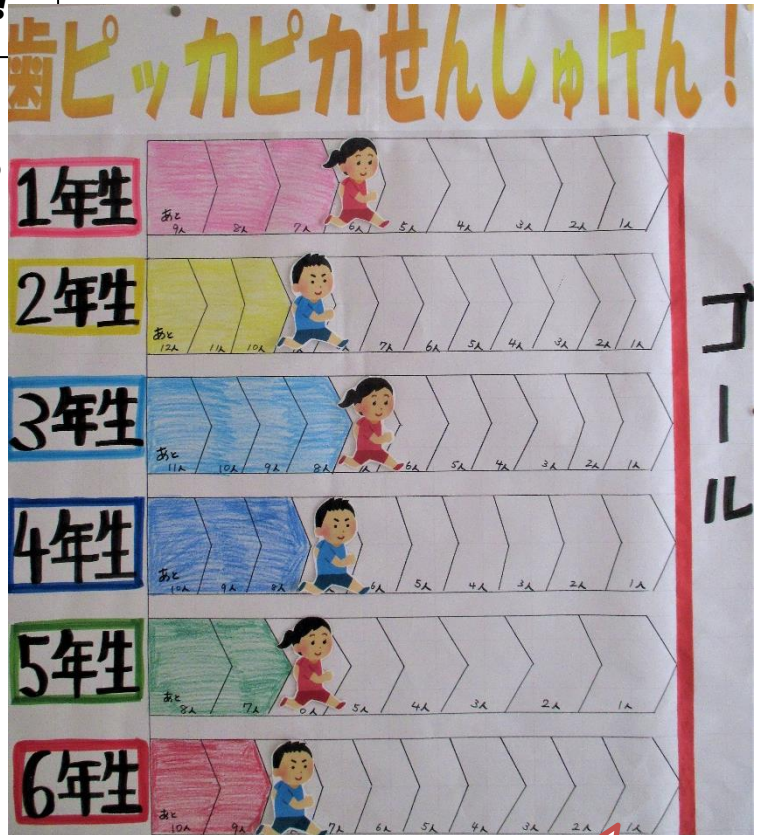 歯ピッカピカせんしゅけん!
1年生
あと
9人 8人 7人 6人 5人 4人 3人 2人 1人
2年生
あと
12人 11人 10人 7人 6人 5人 4人 3人 2人 1人
3年生
あと
11人 10人 9人 8人 6人 5人 4人 3人 2人 1人
4年生
あと
10人 9人 8人 6人 5人 4人 3人 2人 1人
5年生
あと
8人 7人 5人 4人 3人 2人 1人
6年生
あと
10人 9人 7人 6人 5人 4人 3人 2人 1人
ゴール